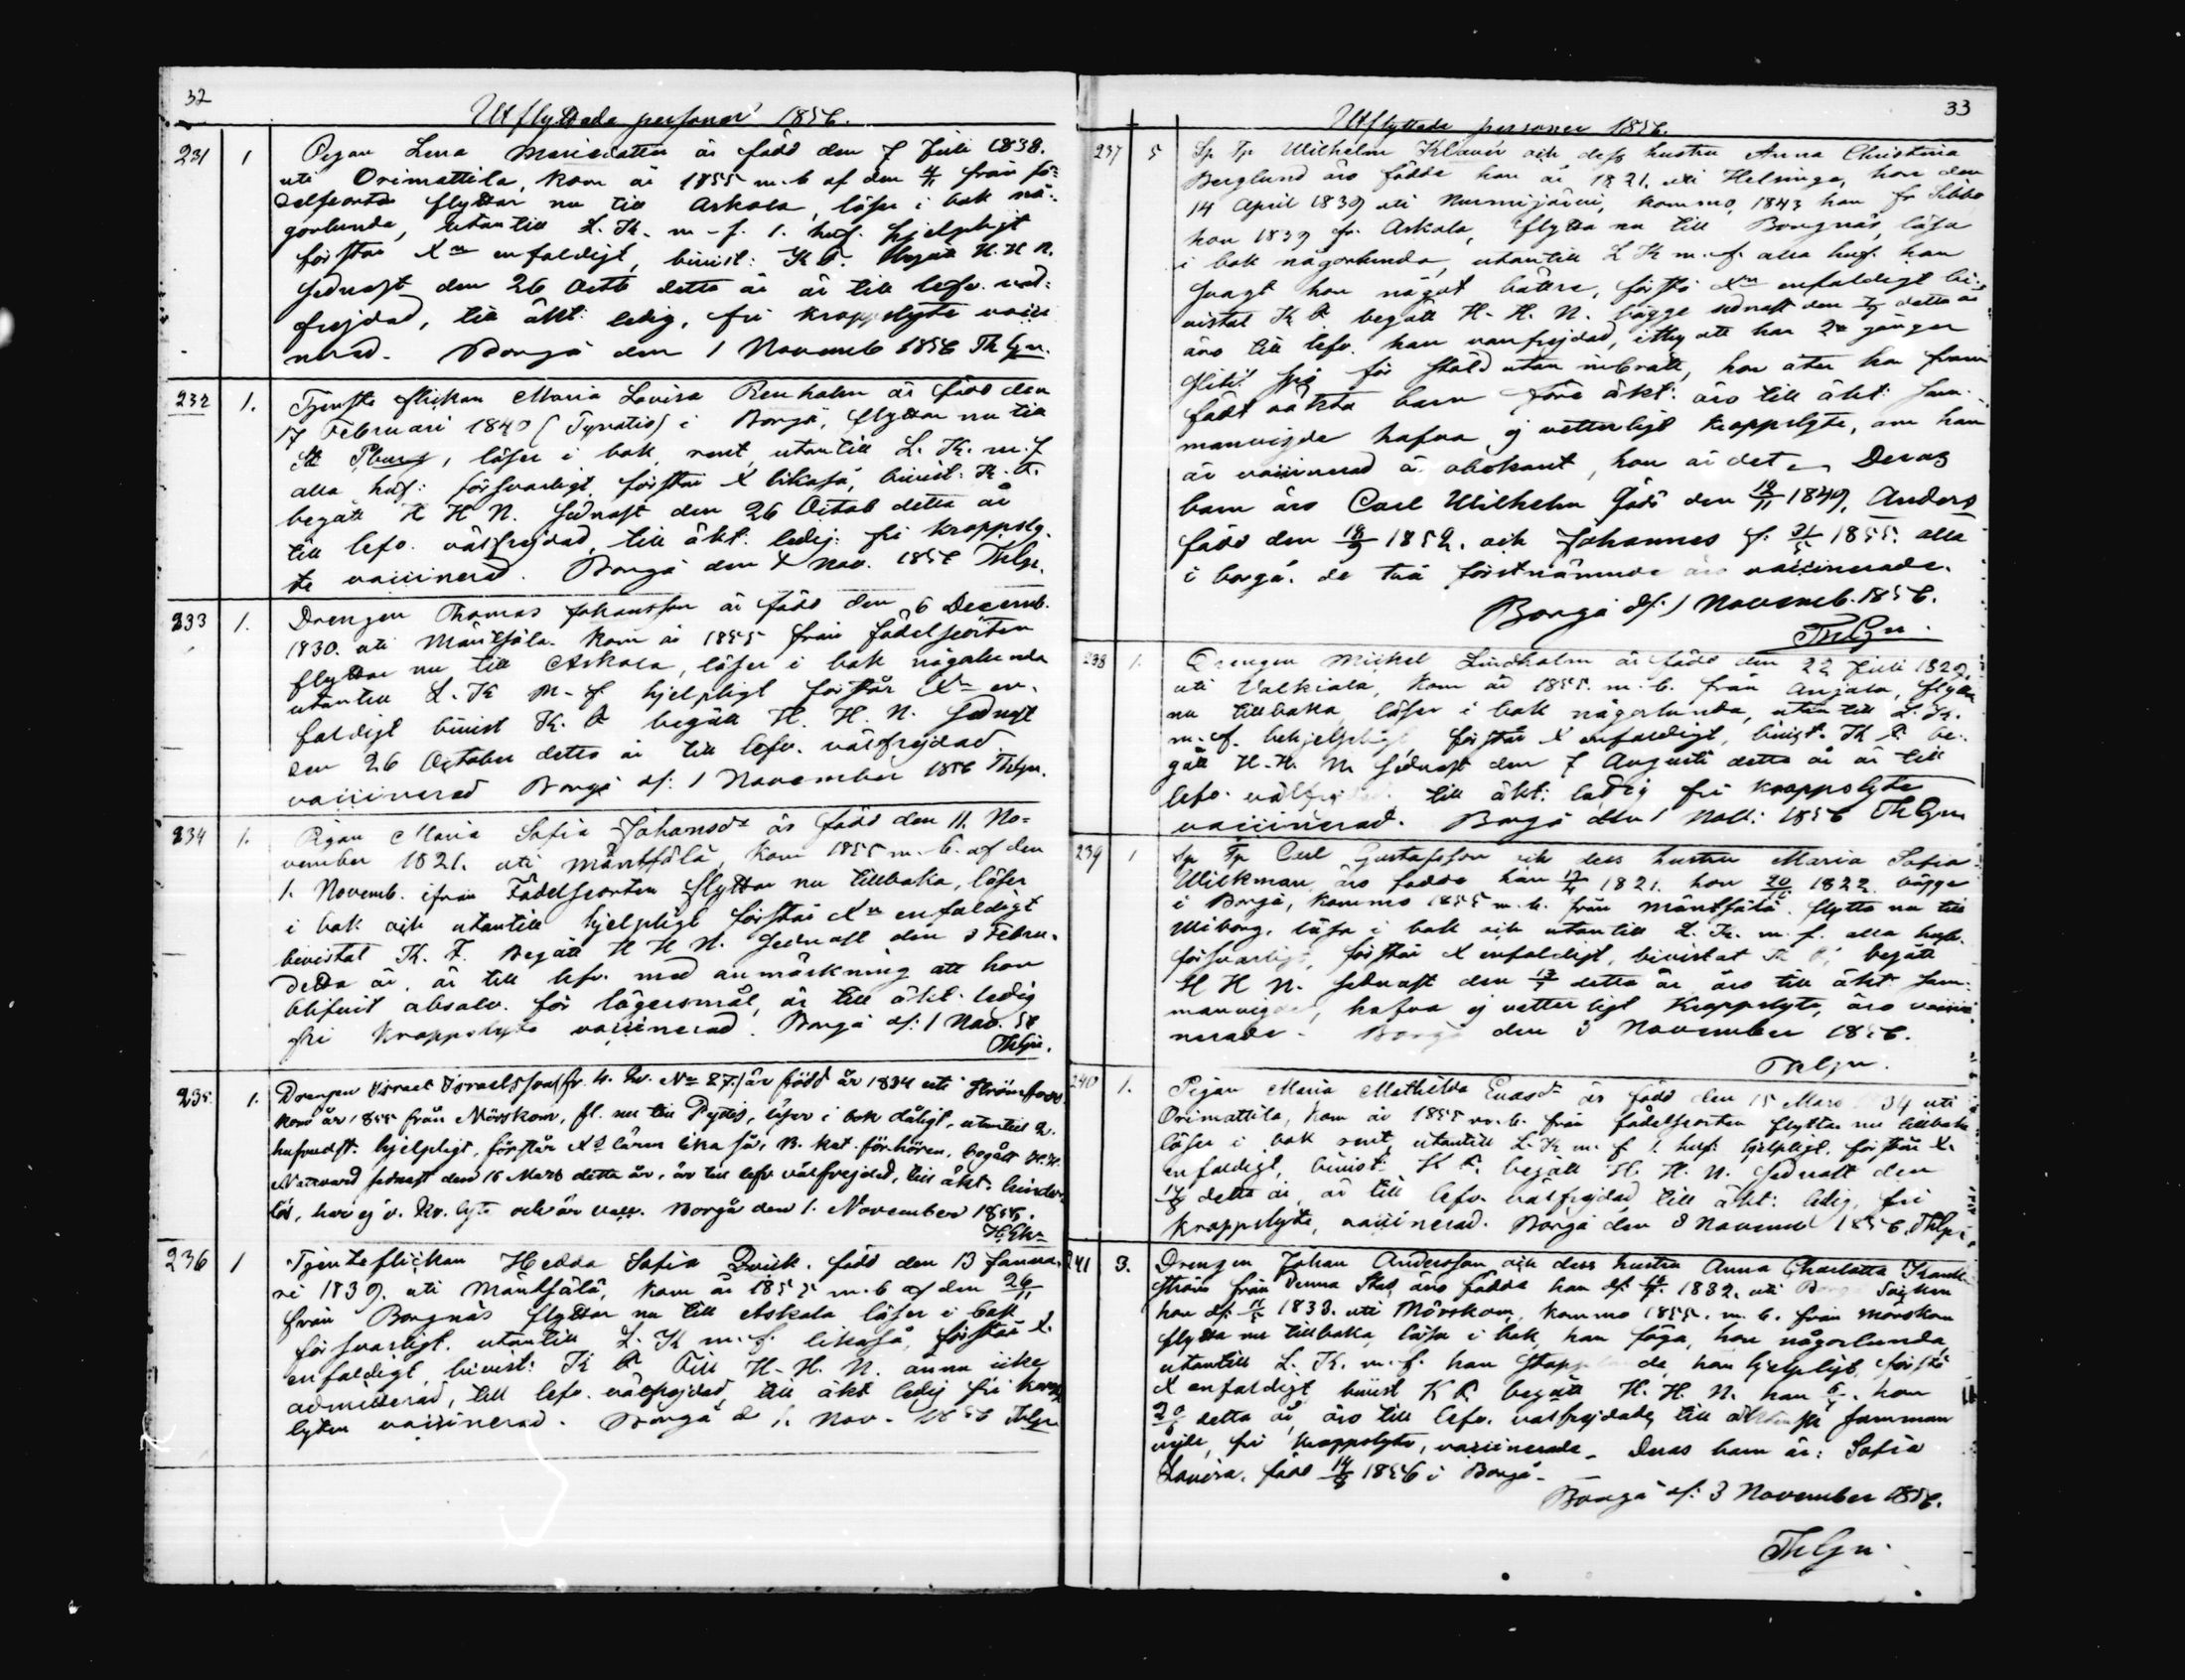 32
Utflyttade personer 1856.
231 1 Pigan Lena Mariedotter är född den 7 Juli 1838.
uti Orimattila, kom år 1855 m. b. af den 4/11 från fö-
delseorten flyttar nu till Askola, läser i bok nå-
gorlunda, utantill L. K. m. f. 1. huf. hjelpligt
förstår Xm enfaldigt, bivist: K F. begått H. H. N.
sednast den 26 Octb detta år är till lefv. väl-
frejdad, till äkt: ledig, fri kroppslyte vacci
nerad. Borgå den 1 Novemb 1856 ThLgn.
232 1. Tjenste flickan Maria Lovisa Renholm är född den
17 Februari 1840 i Borgå, flyttar nu till
St Pburg, läser i bok rent utantill L. K. m. f
alla huf: försvarligt förstår X likaså, bivist: K. F.
begått H H N. sednast den 26 Octob detta år
till lefv. välfrejdad, till äkt: ledig: fri kroppsly-
te vaccinerad. Borgå den 1 Nov. 1856 ThLgn.
233 1. Drengen Thomas Johansson är född den 6 Decemb.
1830. uti Mäntsälä. kom år 1855 från födelseorten
flyttar nu till Askola, läser i bok någolunda
utantill L. K m. f. hjelpligt förstår Xm en-
faldigt bivist K. F begått H. H. N. sednast
den 26 October detta år till lefv. välfrejdad
vaccinerad Borgå d: 1 November 1856 ThLgn.
234 1. Pigan Maria Sofia Johansdr är född den 11. No-
vember 1821. uti Mäntsälä, kom 1855 m. b. af den
1. Novemb. ifrån Födelseorten flyttar nu tillbaka, läser
i bok och utantill hjelpligt förstår Xm enfaldigt
bivistat K. F. Begått H H N. sednast den 3 Febru-
detta år, är till lefv. med anmärkning att hon
blifvit absolv. för lägersmål, är till äkt. ledig
fri kroppslyte vaccinerad. Borgå d: 1 Nov. 56
ThLgn.
235. 1. Drengen Israel Israelsson (fr. No 27.) är född år 1834 uti Strömfors
kom år 1855 från Mörskom, fl. nu till Pyttis, läser i bok dåligt, utantill L.
hufvudst. hjelpligt, förstår Xs läran lika så, B. kat. förhören, begått H. H.
Nattvard sednast den 16 Mars detta år, är till lefv välfrejdad, till äkt. hinder-
lös, har ej v. Kr. lyte och är vacc. Borgå den 1. November 1856.
236 1 Tjensteflickan Hedda Sofia Qvick. född den 13 Janua-
ri 1839. uti Mäntsälä, kom år 1855 m. b af den 26/11
från Borgnäs flyttar nu till Askola läser i bok
försvarligt. utantill L. K m. f. likaså, förstår X.
enfaldigt, bivist: K F Till H. H. N. ännu icke
admitterad, till lefv. välfrejdad till äkt ledig fri kropps
lyten vaccinerad. Borgå d 1. Nov. 1856 ThLgn
33
Utflyttade personer 1856.
237 5 Sp Tp Wilhelm Klavér och dess hustru Anna Christina
Berglund äro födda han år 1821. uti Helsinge, hon den
14 April 1839 uti Nurmijärvi, kommo 1843 han fr Sibbo
hon 1839 fr. Askola, flytta nu till Borgnäs, läsa
i bok någorlunda, utantill L K m. f. alla huf. han
svagt hon något bättre, förstå Xm enfaldigt bi-
vistat K F. begått H. H. N. bägge sednast den detta år
äro till lefv. han vanfrejdad, ithy att han 2ne gånger
slitit spö för stöld utan inbrott, hon åter har fram
födt oäkta barn före äkt: äro till äkt: sam-
manvigde hafva ej vetterligt kroppslyte, om han
är vaccinerad är obekant, hon är det. Deras
barn äro Carl Wilhelm född den 19/11 1849, Anders
född den 18/9 1852. och Johannes f. 31/5 1855. alla
i borgå. de två förstnämnde äro vaccinerade.
Borgå d: 1 Novemb. 1856.
ThLgn.
238 1. Drengen Mickel Lindholm är född den 22 Juli 1829.
uti Valkiala, kom år 1855. m. b. från Anjala, flyttar
nu tillbaka, läser i bok någorlunda, utantill L. K.
m. f. behjelpligt, förstår X enfaldigt, bivist. K F. be-
gått H. H. N. sednast den 7 Augusti detta år är till
lefv. välfrejdad till äkt: ledig fri kroppslyte
vaccinerad. Borgå den 1 Nov: 1856 ThLgn
239 1 Sp Tp Carl Gustafsson och dess hustru Maria Sofia
Wickman, äro födda han 1821. hon 1822 bägge
i Borgå, kommo 1855 m. b. från Mäntsälä. flytta nu till
Wiborg. läsa i bok och utantill L. K. m. f. alla huf.
försvarligt, förstår X enfaldigt, bivistat K F, begått
H H N. sednast den detta år äro till äkt: sam-
manvigde, hafva ej vetterligt kroppslyte, äro vacci-
nerade. Borgå den 3 November 1856.
ThLgn.
240 1. Pigan Maria Mathilda Evasdr är född den 15 Mars 34 uti
Orimattila, kom år 1855 m. b. från födelseorten flyttar nu tillbaka
läser i bok rent, utantill L. K m f 1. huf: hjelpligt. förstår X.
enfaldigt, bivist: K F. begått H. H. N. sednast den
detta år, är till lefv. välfrejdad, till äkt: ledig, fri
kroppslyte, vaccinerad. Borgå den 3 Novemb 1856. ThLgn.
241 3. Drengen Johan Andersson och dess hustru Anna Charlotta
ström från Denna Stad, äro födda han d: 1832. uti Borgå Socken
hon d: 1833. uti Mörskom, kommo 1855. m. b. från Mörskom
flytta nu tillbaka, läsa i bok, han föga, hon någorlunda,
utantill L. K. m. f. han de, hon hjelpligt, förstå
X enfaldigt, bivist K F. begått H. H. N. han hon
detta år, äro till lefv. välfrejdade, till äktenskap samman
vigde, fri kroppslyte, vaccinerade. Deras barn är: Sofia
Lovisa, född 1856 i Borgå.
Borgå d: 3 November 1856.
ThLgn.